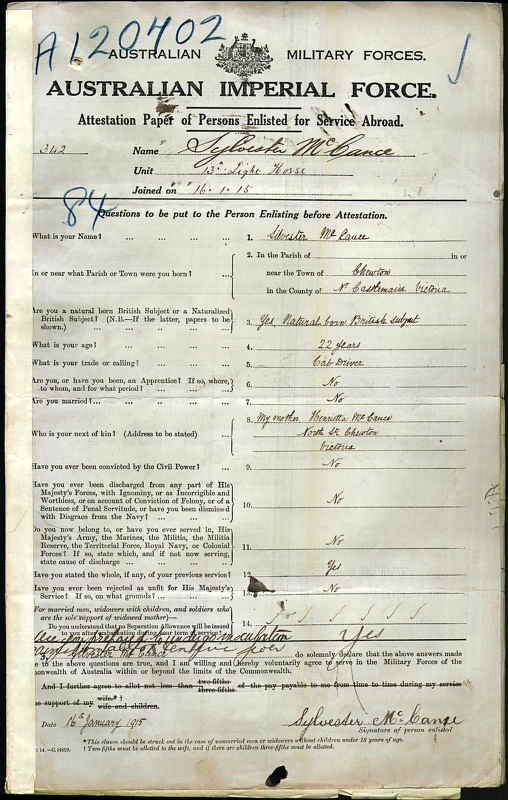 A120402
AUSTRALIAN MILITARY FORCES.
AUSTRALIAN IMPERIAL FORCE.
Attestation Paper of Persons Enlisted for Service Abroad.
342 Name Sylvester McCance
Unit 13th Light Horse
Joined on 16.1.15
84
Questions to be put to the Person Enlisting before Attestation.
What is your Name? ... ... ... ... 1. Silvester McCance
2. In the Parish of in or
In or near what Parish or Town were you born? ... near the Town of Chewton
in the County of Nr Castlemaine Victoria
Are you a natural born British Subject or a Naturalized
British Subject? (N.B.—If the latter, papers to be
shown.) ... ... ... ... 3. Yes Natural born British subject
What is your age? ... ... ... ... 4. 22 years
What is your trade or calling? ... ... ... 5. Cab Driver
Are you, or have you been, an Apprentice? If so, where,
to whom, and for what period? ... ... 6. No
Are you married? ... ... ... ... 7. No
8. My mother Henrietta McCance
Who is your next of kin? (Address to be stated) ... North St Chewton
Victoria
Have you ever been convicted by the Civil Power? ... 9. No
Have you ever been discharged from any part of His
Majesty's Forces, with Ignominy, or as Incorrigible and
Worthless, or on account of Conviction of Felony, or of a
Sentence of Penal Servitude, or have you been dismissed
with Disgrace from the Navy? ... ... 10. No
Do you now belong to, or have you ever served in, His
Majesty's Army, the Marines, the Militia, the Militia
Reserve, the Territorial Force, Royal Navy, or Colonial
Forces? If so, state which, and if not now serving,
state cause of discharge ... ... 11. No
Have you stated the whole, if any, of your previous service? 12 Yes
Have you ever been rejected as unfit for His Majesty's
Service? If so, on what grounds? ... ... No
For married men, widowers with children, and soldiers who
are the sole support of widowed mother—
Do you understand that no Separation Allowance will be issued
to you after embarkation during your term of service? 14.
Are you prepared to undergo inoculation
Yes
Sylvester McCance do solemnly declare that the above answers made
to the above questions are true, and I am willing and hereby voluntarily agree to serve in the Military Forces of the
Commonwealth of Australia within or beyond the limits of the Commonwealth.
And I further agree to allot not less than two-fifths three-fifths of the pay payable to me from time to time during my service
support of my wife.* †
wife and children.
Date 16th January 1915 Sylvester McCance
Signature of person enlisted
* This clause should be struck out in the case of unmarried men or widowers without children under 18 years of age.
† Two-fifths must be allotted to the wife, and if there are children three-fifths must be allotted.